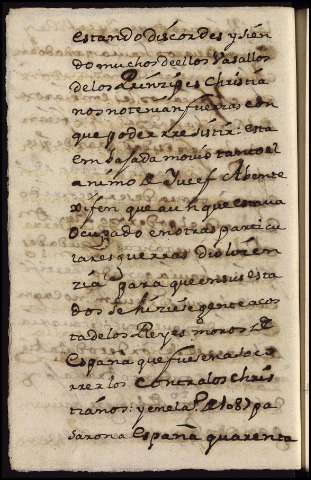 estando discordes y sien
do muchos deellos Vasallos
delos Prinzipes Christia
nos notenian fuerzas con
que poder rresistir: esta
embasada movio tanto el
animo de Jucef Abente
xifen que aunque estava
Ocupado en otras particu
lares guerras dio lizen
zia para que ensus esta
dos se hiziese gente acos
ta delos Reyes moros de
España que fuesen aso co
rrerlos Contra los Chris
tianos: yenel a.º de 1087 pa
saron a España quarenta